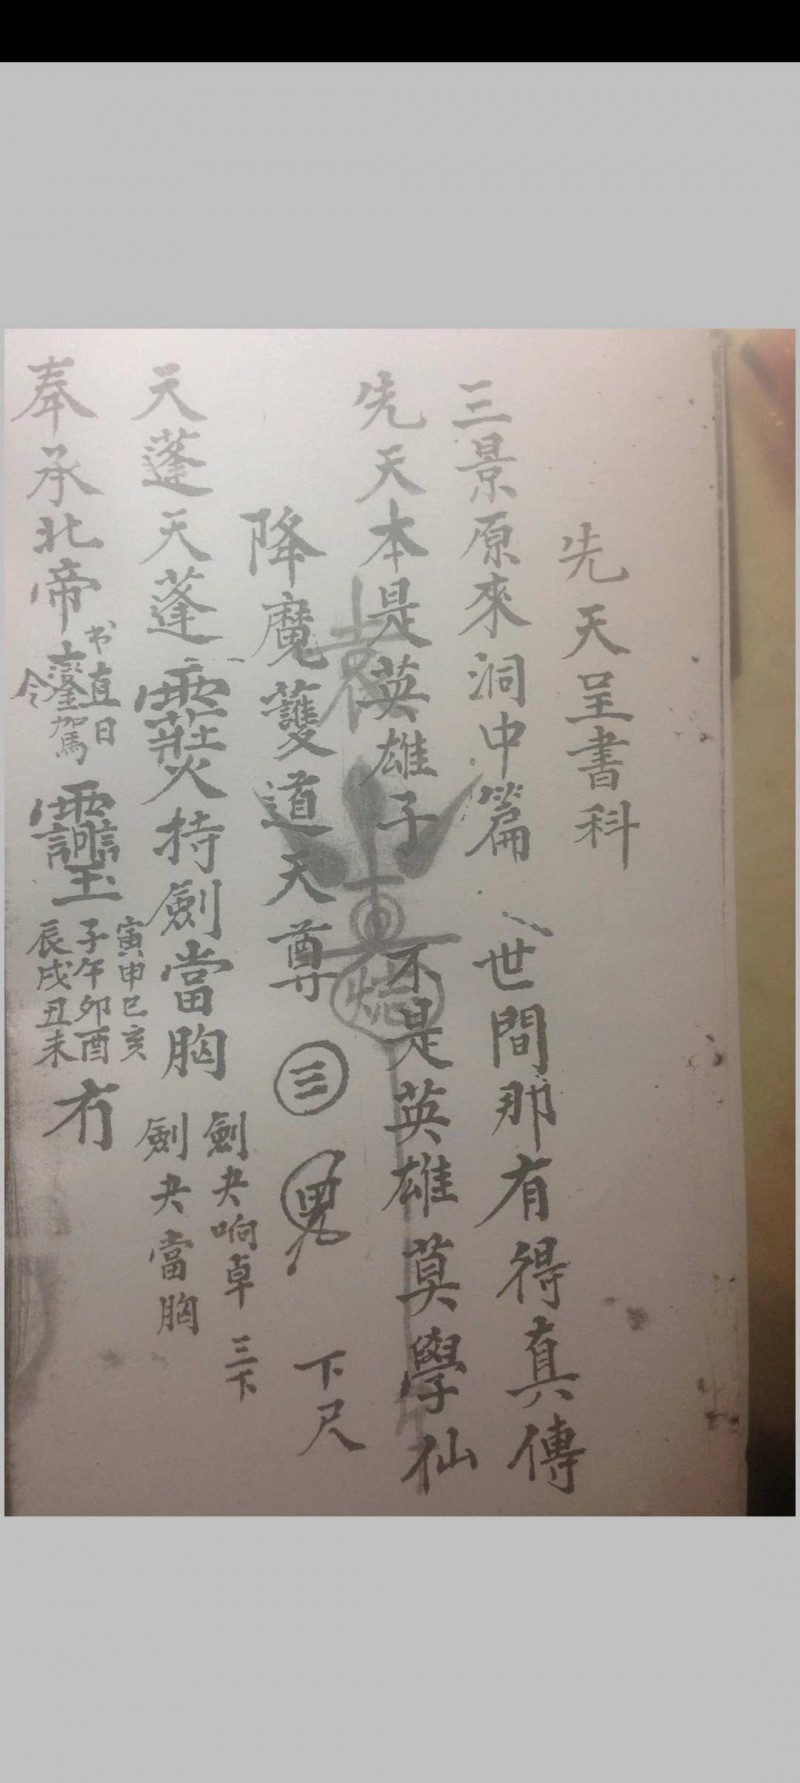 先天呈書科
三景原來洞中篇　世間那有得真傳
先天本是英雄子　不是英雄莫學仙
降魔護道天尊　三　下尺
天蓬天蓬　持劍當胸
劍夬响卓三下
劍夬當胸
奉承北帝
书直日
駕
令
寅申巳亥
子午卯酉
辰戌丑未